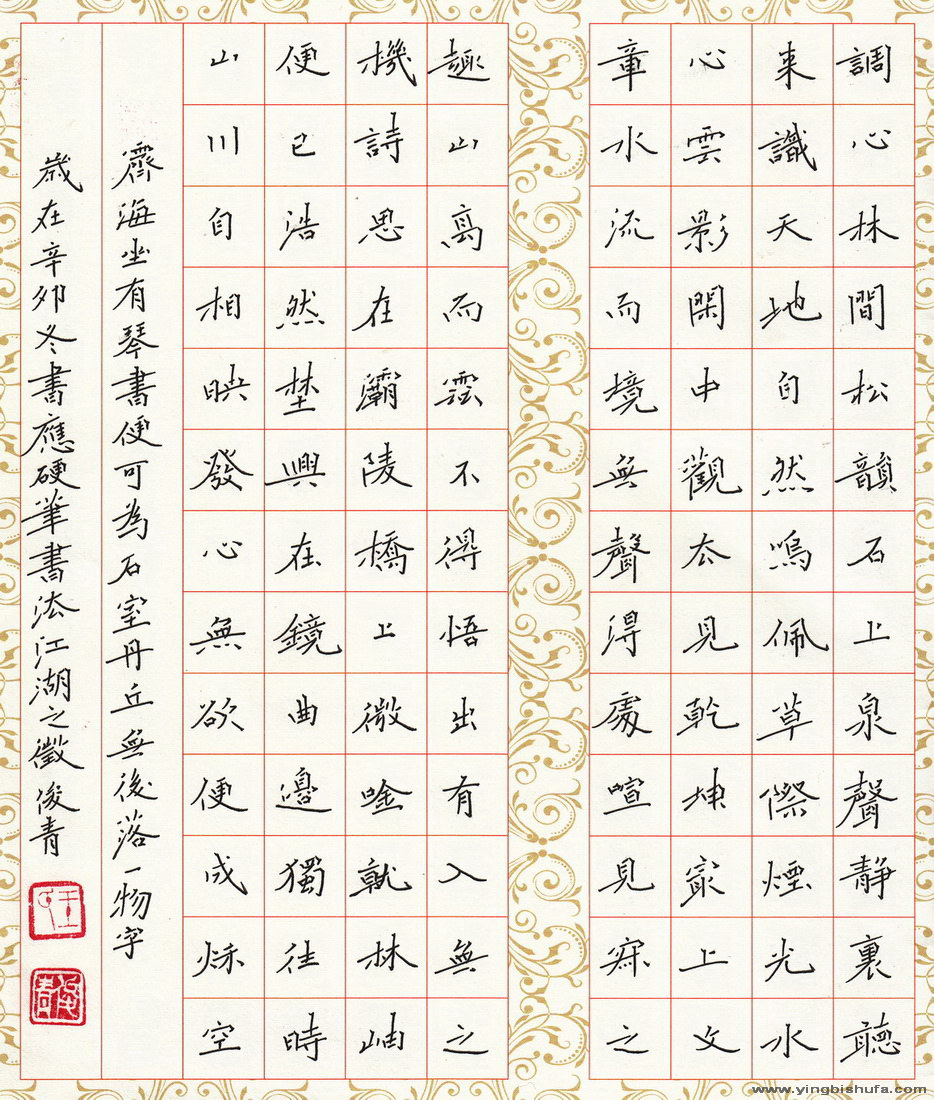 調心林間松韻石上泉聲靜裏聽
来識天地自然鳴佩草際煙光水
心雲影閑中觀去見乾坤最上文
章水流而境無聲得處喧見寂之
趣山高而雲不得悟出有入無之
機詩思在灞陵橋上微唫就林岫
便已浩然埜興在鏡曲邊獨往時
山川自相映發心無欲便成秌空
霽海坐有琴書便可為石室丹丘無後落一物字
歲在辛卯冬書應硬筆書法江湖之徵俊青
www.yingbishufa.com